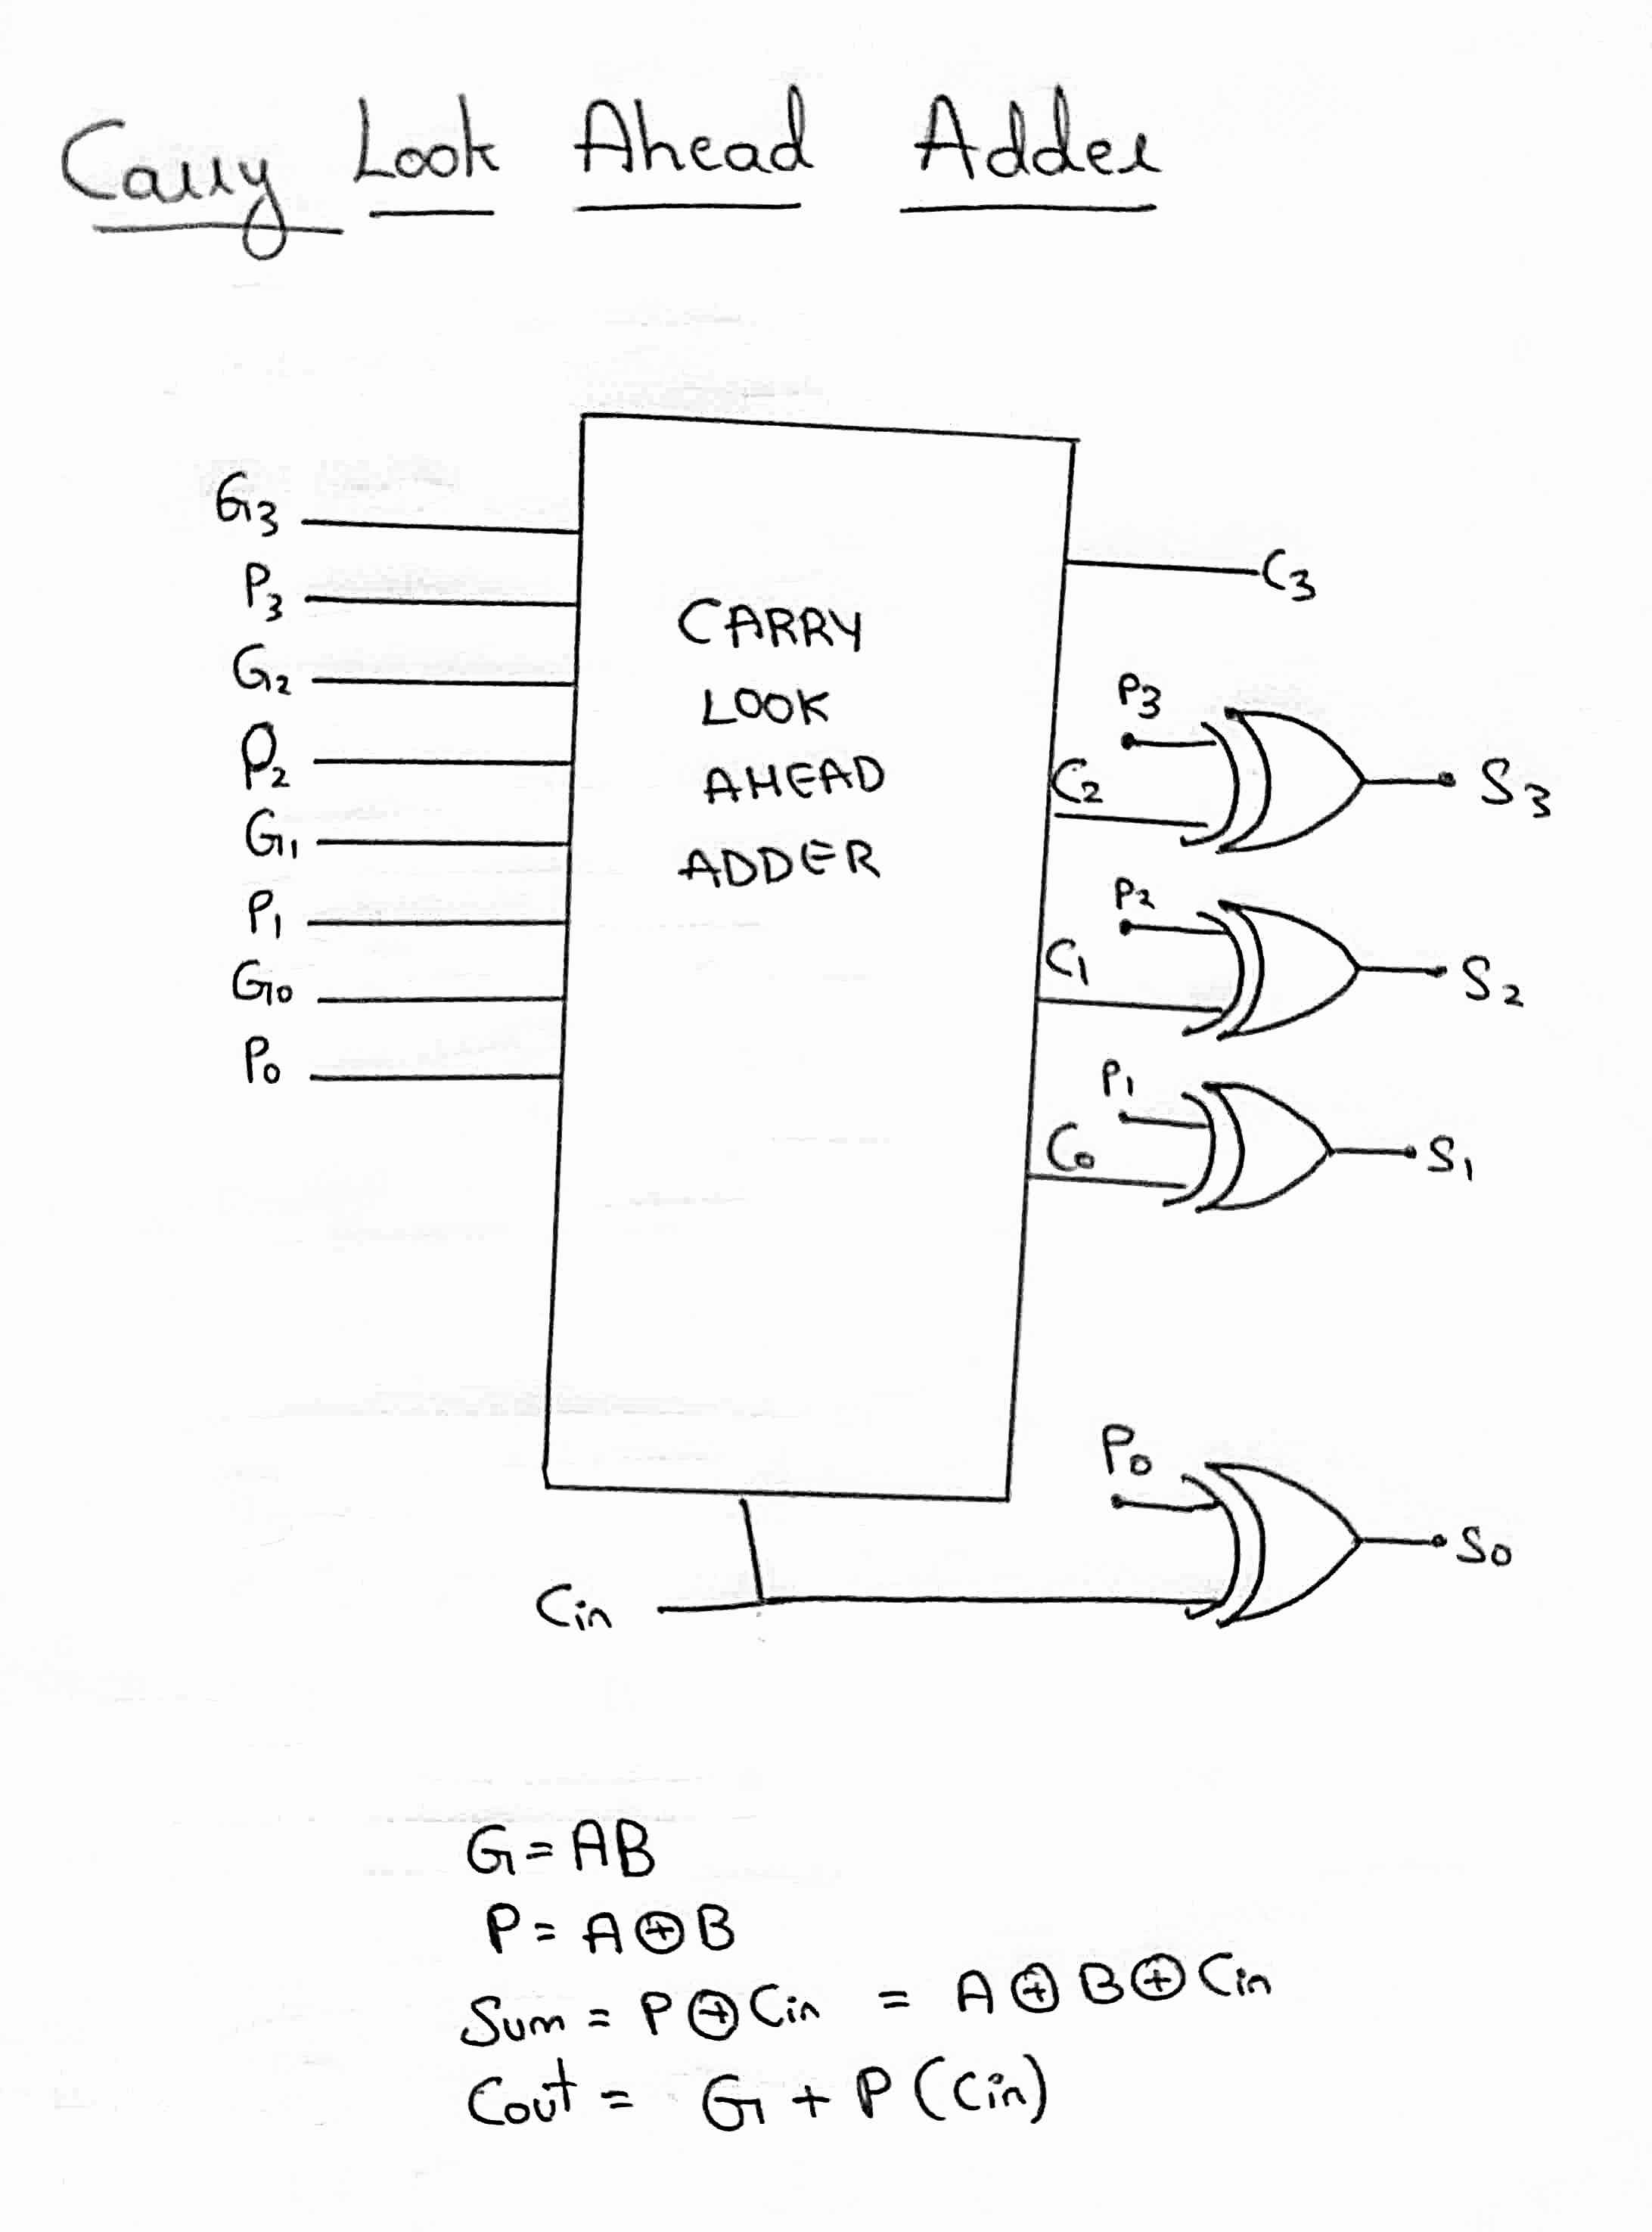 Carry Look Ahead Adder
G3
P3
G2
P2
G1
P1
G0
P0
CARRY
LOOK
AHEAD
ADDER
C3
P3
C2
S3
P2
C1
S2
P1
C0
S1
P0
S0
Cin
G = AB
P = A ⊕ B
Sum = P ⊕ Cin = A ⊕ B ⊕ Cin
Cout = G + P (Cin)